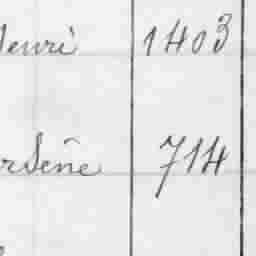 Henri 1403
Arsène 714